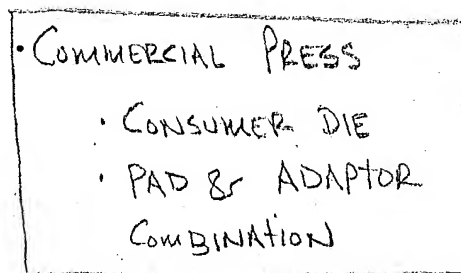 · COMMERCIAL PRESS
· CONSUMER DIE
· PAD & ADAPTOR
COMBINATION